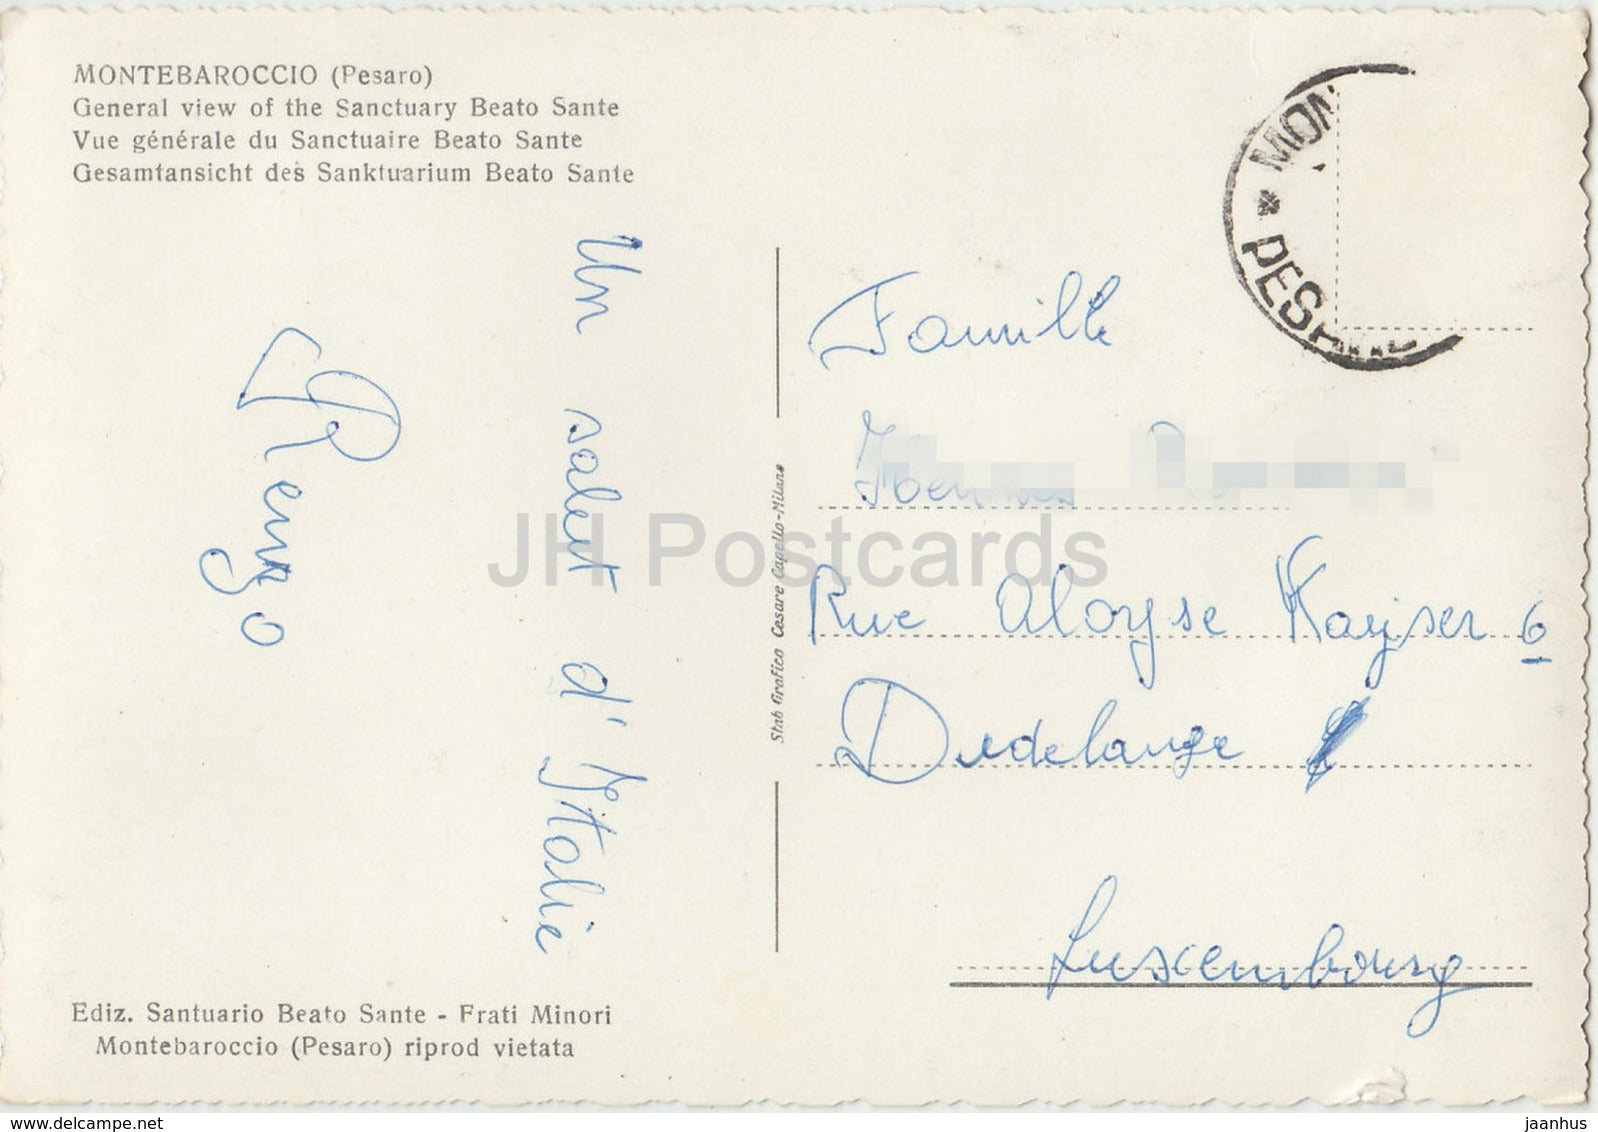 MONTEBAROCCIO (Pesaro)
General view of the Sanctuary Beato Sante
Vue générale du Sanctuaire Beato Sante
Gesamtansicht des Sanktuarium Beato Sante
Un salut d'Italie
Renzo
Ediz. Santuario Beato Sante - Frati Minori
Montebaroccio (Pesaro) riprod vietata
Stab Grafico Cesare Capello-Milano
* MON
PESA
Famille
Rue Aloyse Kayser 6
Dudelange
Luxembourg
JH Postcards
www.delcampe.net
jaanhus